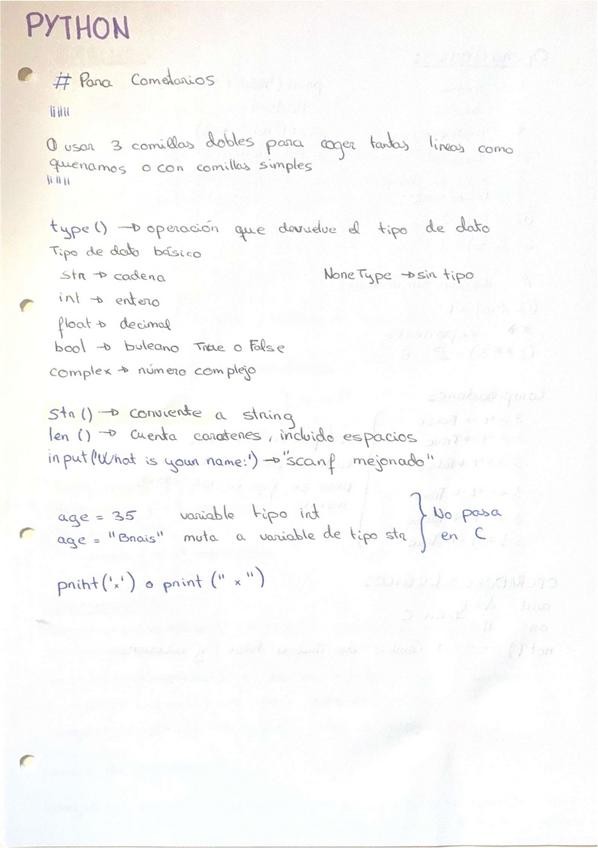 PYTHON
# Para Cometarios
"""
O usar 3 comillas dobles para coger tantas lineas como
queramos o con comillas simples
"""
type() → operación que devuelve el tipo de dato
Tipo de dato básico
str → cadena
NoneType → sin tipo
int → entero
float → decimal
bool → buleano True o False
complex → número complejo
str() → convierte a string
len () → cuenta carateres, incluido espacios
input('What is your name:') → "scanf mejorado"
age = 35 variable tipo int
age = "Brais" muta a variable de tipo str } No pasa en C
print('x') o print (" x ")